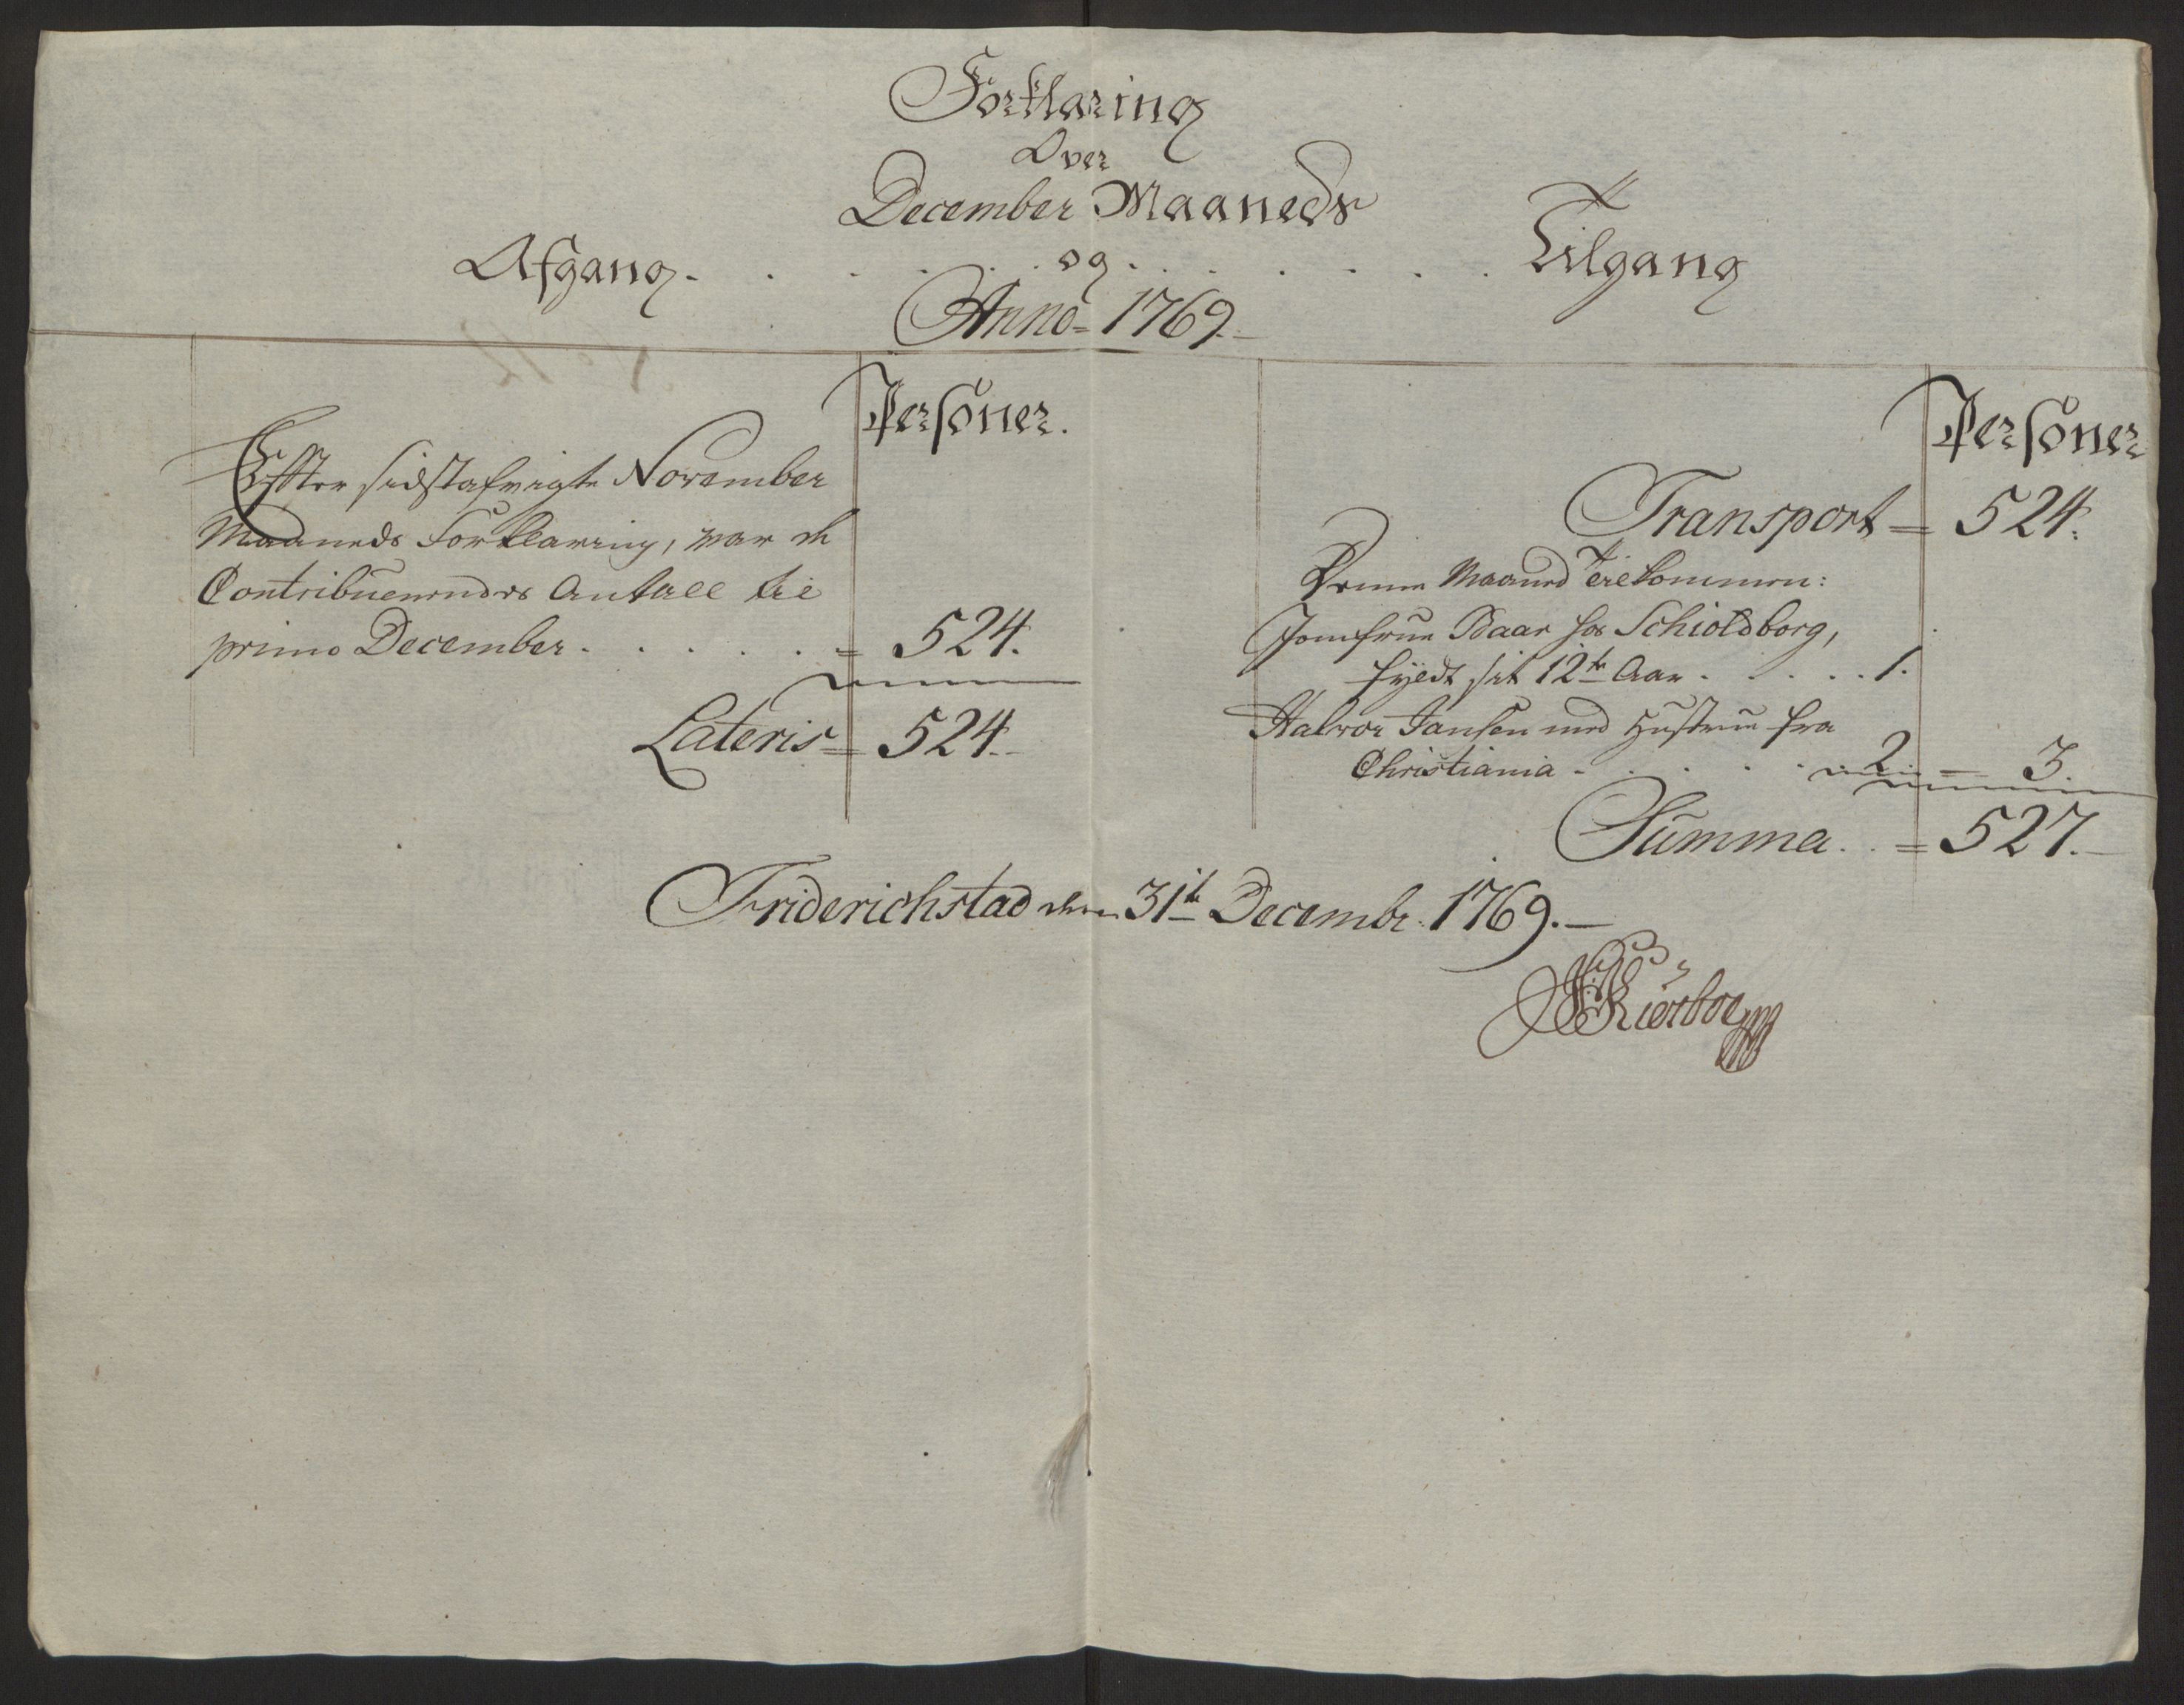 Forklaring
Over
December Maaneds
Afgang . . . . . . og . . . . . . Tilgang
Anno 1769.
Personer.
Effter sidstafvigte November
Maaneds Forklaring, var de
Contribuerendes Antall til
primo December . . . . . = 524.
Lateris = 524.
Personer
Transport = 524.
Denne Maaned tilkommen:
Jomfrue Baar hos Schioldborg,
fyldt sit 12te Aar . . . . . 1.
Halvor Jansen med Hustrue fra
Christiania . . . . . 2 = 3.
Summa . . = 527.
Friderichstad den 31te Decembr. 1769.
Kierboe